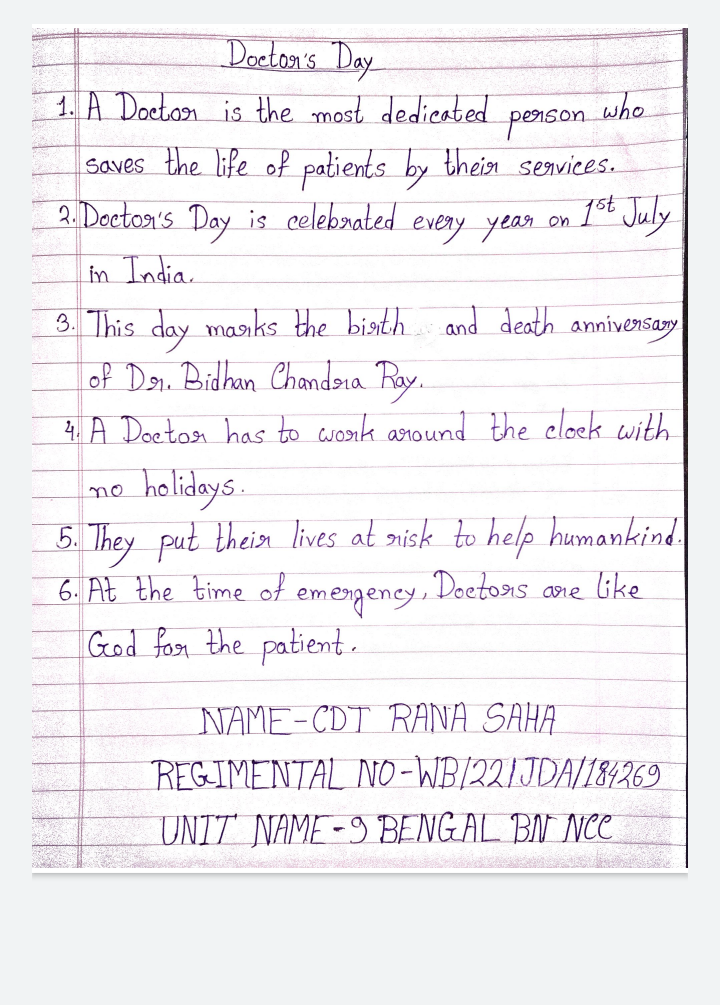 Doctor's Day
1. A Doctor is the most dedicated person who
saves the life of patients by their services.
2. Doctor's Day is celebrated every year on 1st July
in India.
3. This day marks the birth and death anniversary
of Dr. Bidhan Chandra Ray.
4. A Doctor has to work around the clock with
no holidays.
5. They put their lives at risk to help humankind.
6. At the time of emergency, Doctors are like
God for the patient.
NAME-CDT RANA SAHA
REGIMENTAL NO-WB/22/JDA/184269
UNIT NAME-9 BENGAL BN NCC